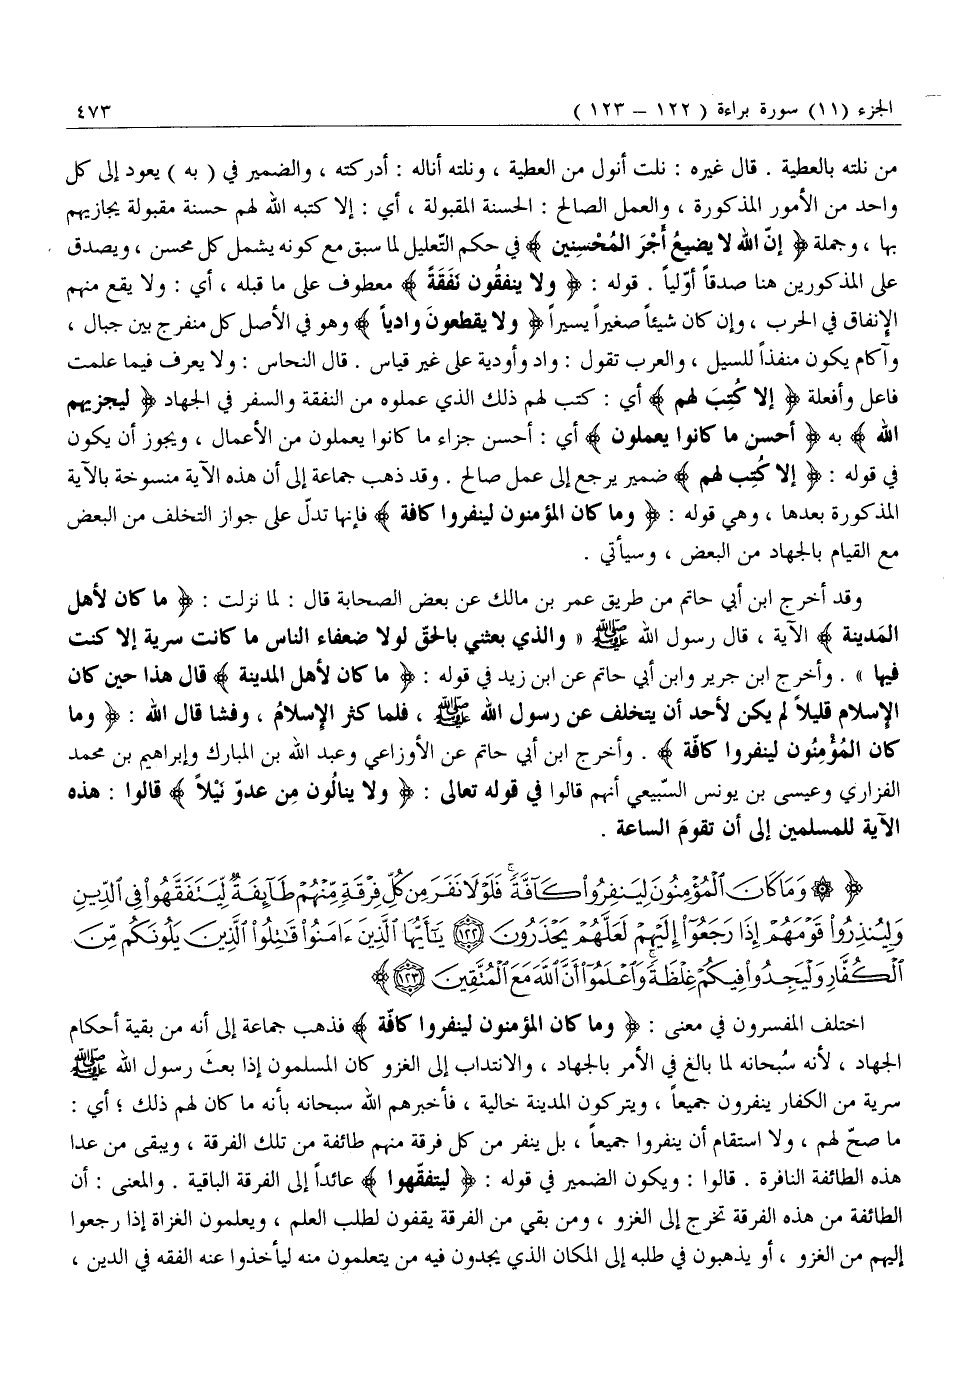 الجزء (١١) سورة براءة ( ١٢٢ – ١٢٣ ) ٤٧٣
من نلته بالعطية . قال غيره : نلت أنول من العطية ، ونلته أناله : أدركته ، والضمير في ( به ) يعود إلى كل
واحد من الأمور المذكورة ، والعمل الصالح : الحسنة المقبولة ، أي : إلا كتبه الله لهم حسنة مقبولة يجازيهم
بها ، وجملة ﴿ إنّ الله لا يضيعُ أَجْرَ المُحْسِنِين ﴾ في حكم التّعليل لما سبق مع كونه يشمل كل محسن ، ويصدق
على المذكورين هنا صدقاً أوّلياً . قوله : ﴿ ولا ينفقُون نَفَقَةً ﴾ معطوف على ما قبله ، أي : ولا يقع منهم
الإنفاق في الحرب ، وإن كان شيئاً صغيراً يسيراً ﴿ ولا يقطعونَ وادياً ﴾ وهو في الأصل كل منفرج بين جبال ،
وآكام يكون منفذاً للسيل ، والعرب تقول : واد وأودية على غير قياس . قال النحاس : ولا يعرف فيما علمت
فاعل وأفعلة ﴿ إلا كُتِبَ لهم ﴾ أي : كتب لهم ذلك الذي عملوه من النفقة والسفر في الجهاد ﴿ ليجزيهم
الله ﴾ به ﴿ أحسن ما كانوا يعملون ﴾ أي : أحسن جزاء ما كانوا يعملون من الأعمال ، ويجوز أن يكون
في قوله : ﴿ إلا كُتِب لهم ﴾ ضمير يرجع إلى عمل صالح . وقد ذهب جماعة إلى أن هذه الآية منسوخة بالآية
المذكورة بعدها ، وهي قوله : ﴿ وما كان المؤمنون لينفروا كافة ﴾ فإنها تدلّ على جواز التخلف من البعض
مع القيام بالجهاد من البعض ، وسيأتي .
وقد أخرج ابن أبي حاتم من طريق عمر بن مالك عن بعض الصحابة قال : لما نزلت : ﴿ ما كان لأهل
المَدينة ﴾ الآية ، قال رسول الله ﷺ « والذي بعثني بالحقّ لولا ضعفاء الناس ما كانت سرية إلا كنت
فيها » . وأخرج ابن جرير وابن أبي حاتم عن ابن زيد في قوله : ﴿ ما كان لأهل المدينة ﴾ قال هذا حين كان
الإسلام قليلاً لم يكن لأحد أن يتخلف عن رسول الله ﷺ ، فلما كثر الإسلامُ ، وفشا قال الله : ﴿ وما
كان المُؤْمِنُون لينفروا كافّة ﴾ . وأخرج ابن أبي حاتم عن الأوزاعي وعبد الله بن المبارك وإبراهيم بن محمد
الفزاري وعيسى بن يونس السّبيعي أنهم قالوا في قوله تعالى : ﴿ ولا ينالُون مِن عدوّ نَيْلاً ﴾ قالوا : هذه
الآية للمسلمين إلى أن تقومَ الساعة .
﴿ ۞ وَمَا كَانَ ٱلْمُؤْمِنُونَ لِيَنفِرُوا۟ كَآفَّةً ۚ فَلَوْلَا نَفَرَ مِن كُلِّ فِرْقَةٍ مِّنْهُمْ طَآئِفَةٌ لِّيَتَفَقَّهُوا۟ فِى ٱلدِّينِ
وَلِيُنذِرُوا۟ قَوْمَهُمْ إِذَا رَجَعُوٓا۟ إِلَيْهِمْ لَعَلَّهُمْ يَحْذَرُونَ ﴿١٢٢﴾ يَـٰٓأَيُّهَا ٱلَّذِينَ ءَامَنُوا۟ قَـٰتِلُوا۟ ٱلَّذِينَ يَلُونَكُم مِّنَ
ٱلْكُفَّارِ وَلْيَجِدُوا۟ فِيكُمْ غِلْظَةً ۚ وَٱعْلَمُوٓا۟ أَنَّ ٱللَّهَ مَعَ ٱلْمُتَّقِينَ ﴿١٢٣﴾ ﴾
اختلف المفسرون في معنى : ﴿ وما كان المؤمنون لينفروا كافّة ﴾ فذهب جماعة إلى أنه من بقية أحكام
الجهاد ، لأنه سُبحانه لما بالغ في الأمر بالجهاد ، والانتداب إلى الغزو كان المسلمون إذا بعثَ رسول الله ﷺ
سرية من الكفار ينفرون جميعاً ، ويتركون المدينة خالية ، فأخبرهم الله سبحانه بأنه ما كان لهم ذلك ؛ أي :
ما صحّ لهم ، ولا استقام أن ينفروا جميعاً ، بل ينفر من كل فرقة منهم طائفة من تلك الفرقة ، ويبقى من عدا
هذه الطائفة النافرة . قالوا : ويكون الضمير في قوله : ﴿ ليتفقّهوا ﴾ عائداً إلى الفرقة الباقية . والمعنى : أن
الطائفة من هذه الفرقة تخرج إلى الغزو ، ومن بقي من الفرقة يقفون لطلب العلم ، ويعلمون الغزاة إذا رجعوا
إليهم من الغزو ، أو يذهبون في طلبه إلى المكان الذي يجدون فيه من يتعلمون منه ليأخذوا عنه الفقه في الدين ،